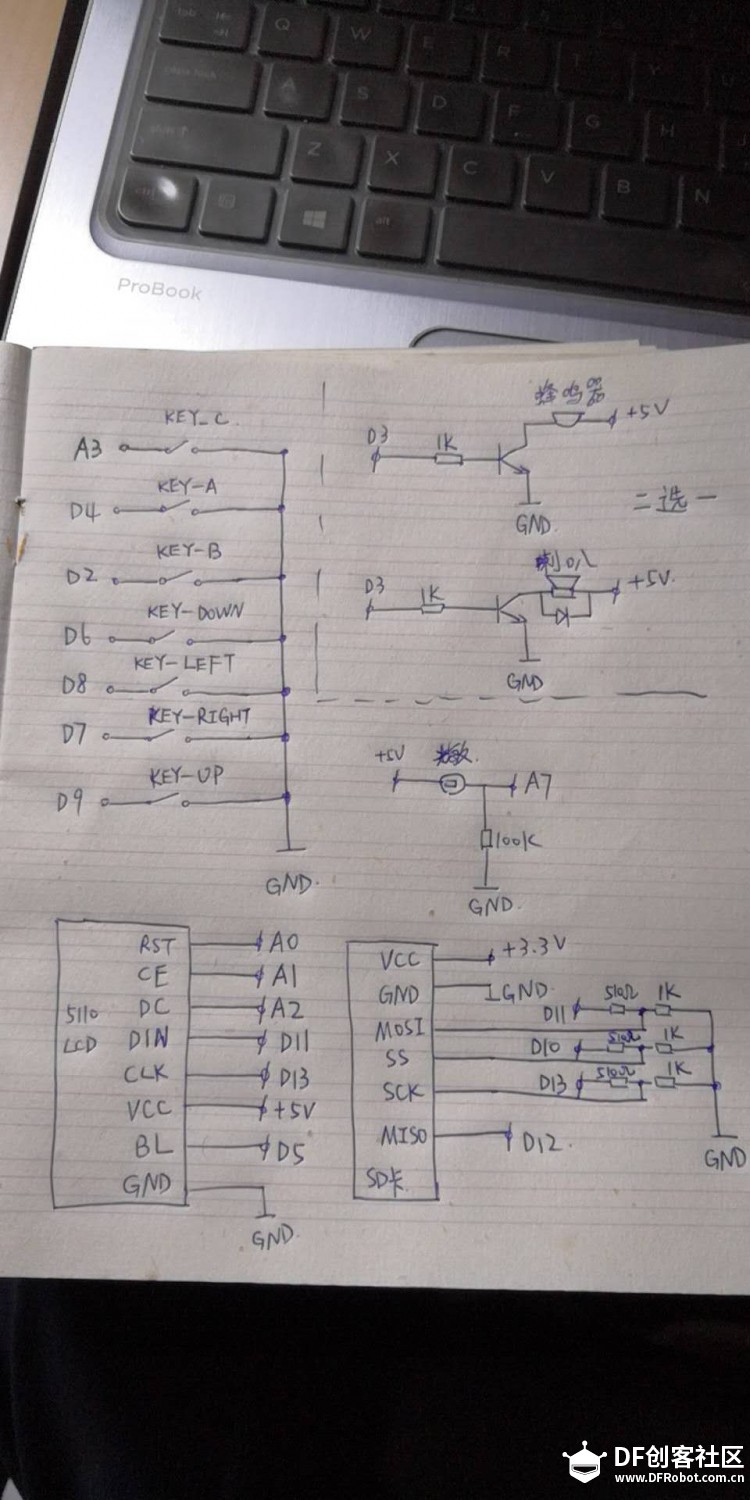 Q
W
E
R
T
Y
A
S
D
F
G
H
Z
X
C
V
B
N
alt
ProBook
KEY_C
A3
KEY-A
D4
KEY-B
D2
KEY-DOWN
D6
KEY-LEFT
D8
KEY-RIGHT
D7
KEY-UP
D9
GND.
蜂鸣器
D3
1K
+5V
GND.
二选一
喇叭
D3
1K
+5V.
GND
+5V
光敏.
A7
100K
GND.
5110
LCD
RST A0
CE A1
DC A2
DIN D11
CLK D13
VCC +5V
BL D5
GND
GND.
VCC +3.3V
GND GND.
MOSI
SS
SCK
MISO D12.
SD卡
D11 510Ω 1K
D10 510Ω 1K
D13 510Ω 1K
GND
DF创客社区
www.DFRobot.com.cn